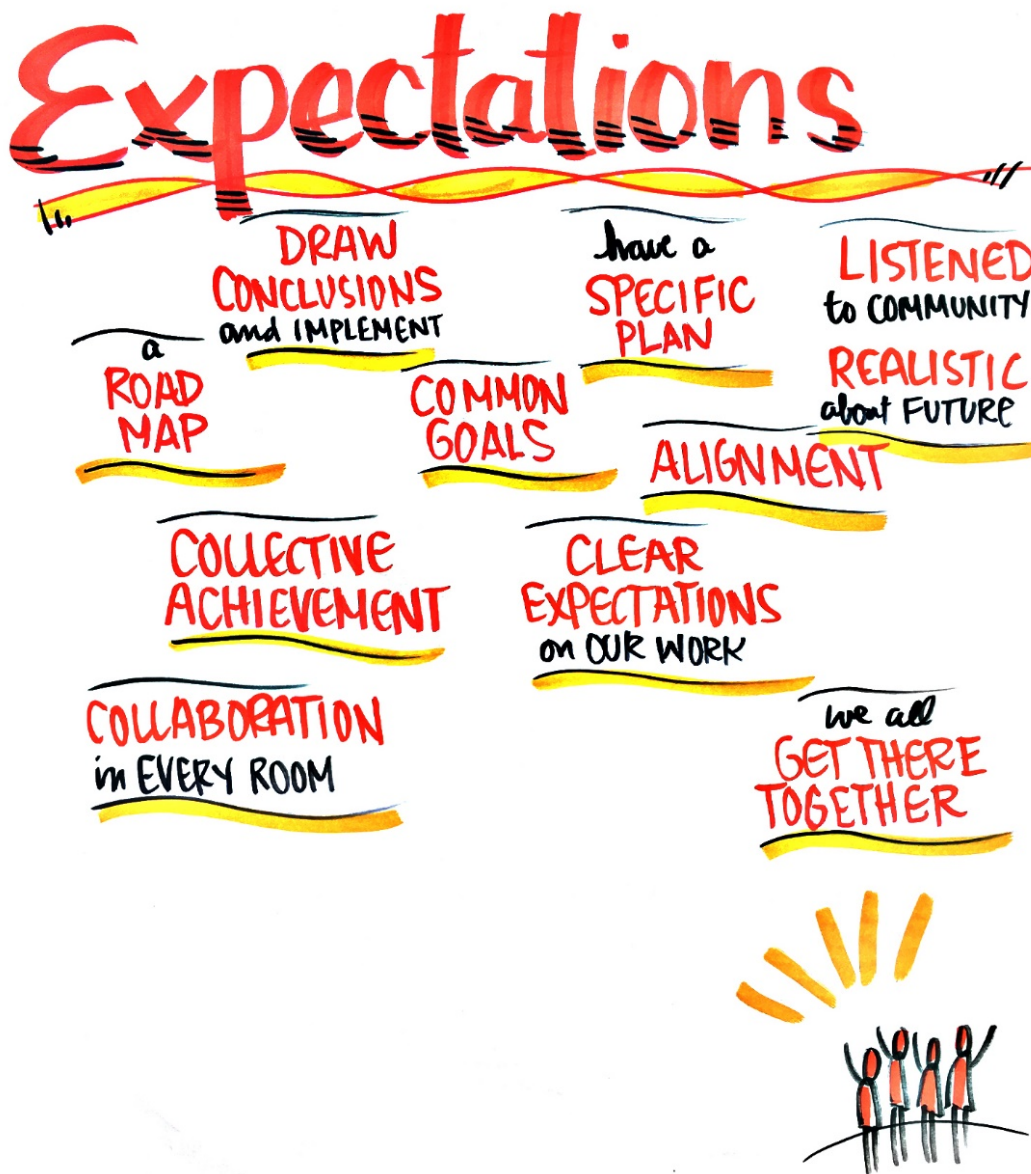 Expectations
DRAW
CONCLUSIONS
and IMPLEMENT
have a
SPECIFIC
PLAN
LISTENED
to COMMUNITY
REALISTIC
about FUTURE
a
ROAD
MAP
COMMON
GOALS
ALIGNMENT
COLLECTIVE
ACHIEVEMENT
CLEAR
EXPECTATIONS
on OUR WORK
COLLABORATION
in EVERY ROOM
we all
GET THERE
TOGETHER